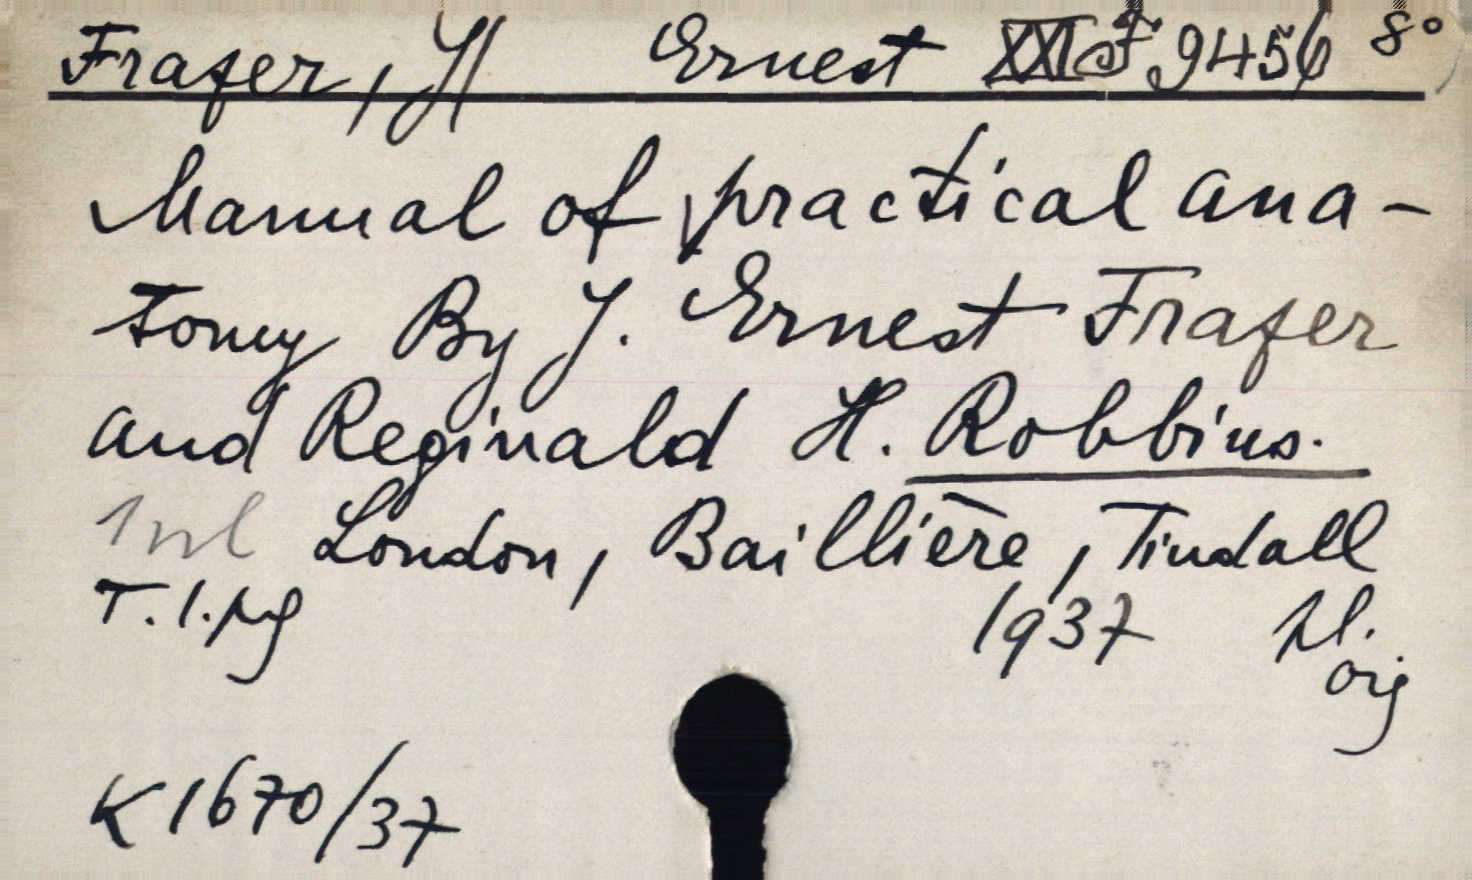 Frazer, J Ernest XXI F 9456 8°
Manual of practical ana-
tomy By J. Ernest Frazer
and Reginald H. Robbins.
London, Baillière, Tindall
T. 1. 1937
K 1670/37